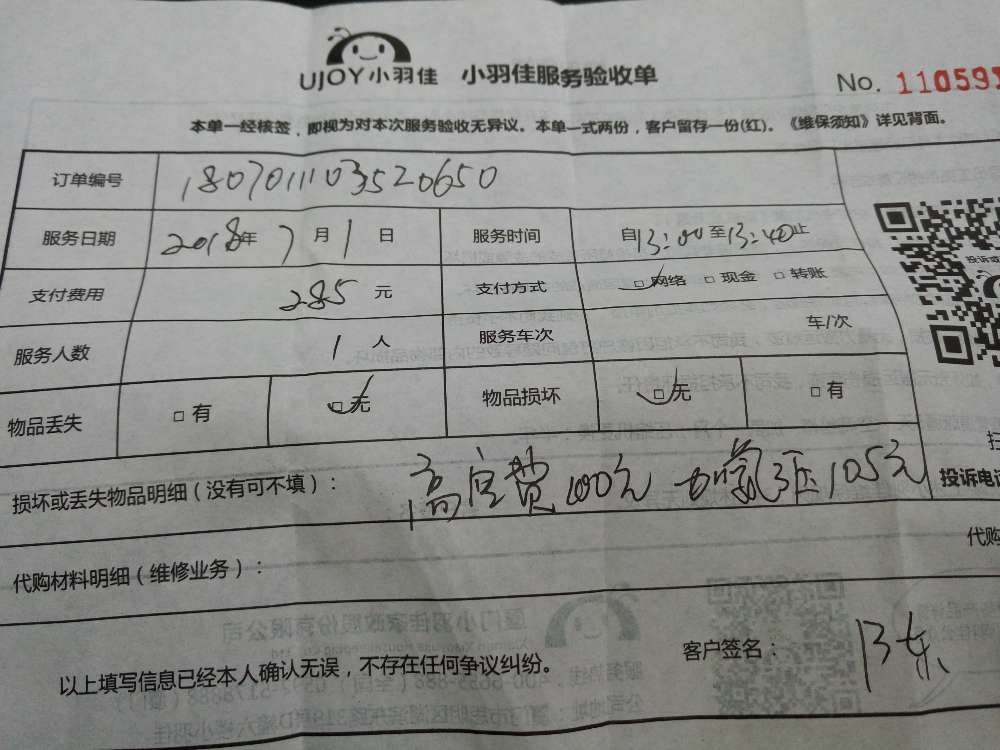 UJOY小羽佳 小羽佳服务验收单
No. 110595
本单一经核签，即视为对本次服务验收无异议。本单一式两份，客户留存一份(红)。《维保须知》详见背面。
订单编号 1807011103520650
服务日期 2018年 7 月 1 日 服务时间 自13:00至13:40止
支付费用 285 元 支付方式 □网络 □现金 □转账
服务人数 1 人 服务车次 车/次
物品丢失 □有 □无 物品损坏 □无 □有
投诉电话
损坏或丢失物品明细（没有可不填）： 高空费100元 加氟3压105元
代购材料明细（维修业务）： 代购
以上填写信息已经本人确认无误，不存在任何争议纠纷。 客户签名：
厦门小羽佳家政股份有限公司